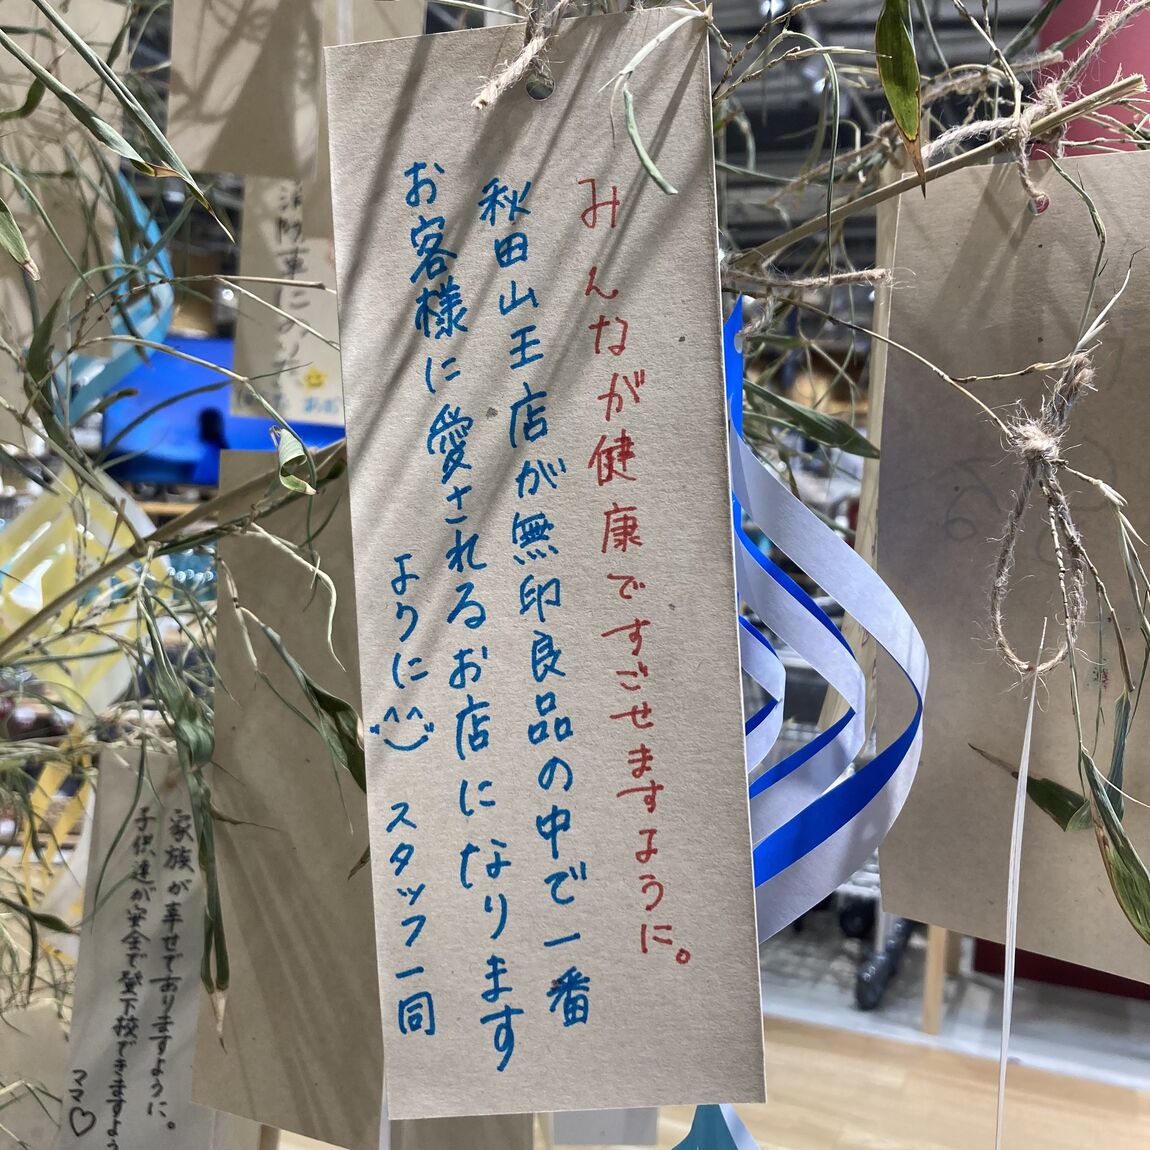 みんなが健康ですごせますように。
秋田山王店が無印良品の中で一番
お客様に愛されるお店になります
ように
スタッフ一同
消防車
家族が幸せでありますように。
子供達が安全で登下校できますよう
ママ♡